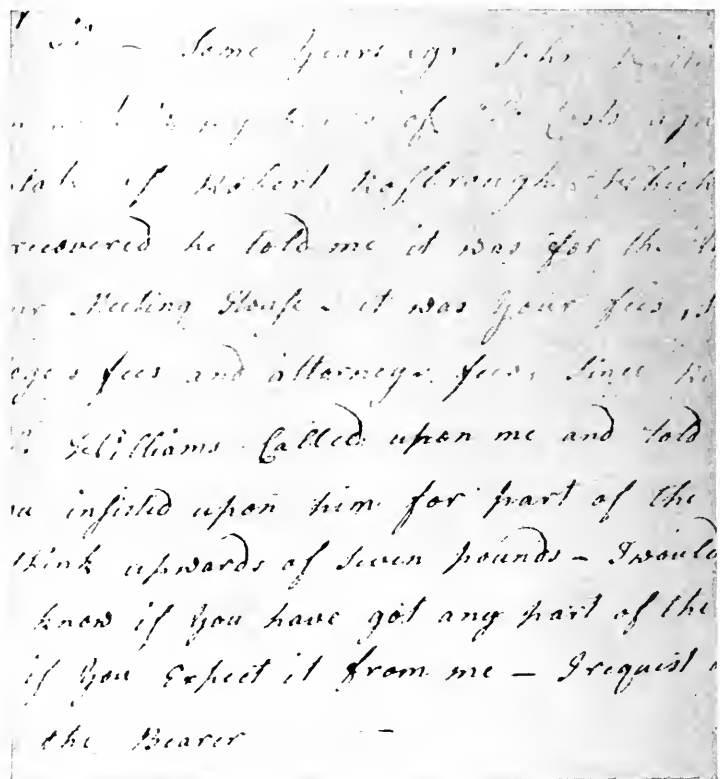 Sr — Some years ago John
my of Costs
of Robert Rosbrough, which
recovered he told me it was for the
Meeting House – it was your fees,
fees and attorneys fees, Since
Williams Called upon me and told
insisted upon him for part of the
think upwards of Seven pounds – I would
know if you have got any part of the
if you Expect it from me — I request
the Bearer —